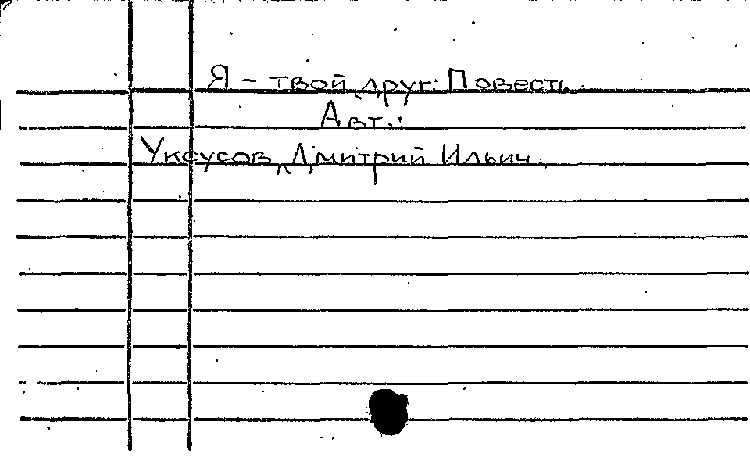 Я - твой друг: Повесть.
Авт.:
Уксусов, Дмитрий Ильич.